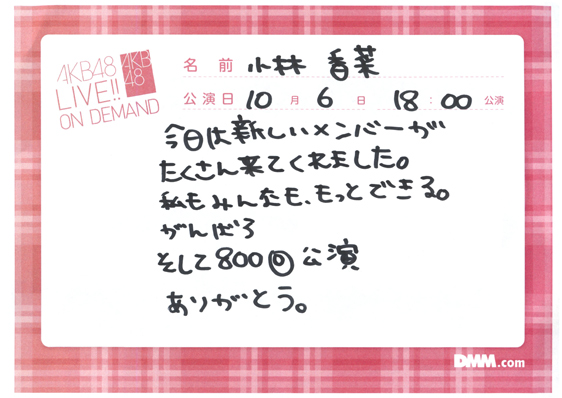 AKB48
LIVE!!
ON DEMAND
AKB
48
名前 小林 香菜
公演日 10月 6日 18:00公演
今日は新しいメンバーが
たくさん来てくれました。
私もみんなも、もっとできる。
がんばろ
そして800回公演
ありがとう。
DMM.com